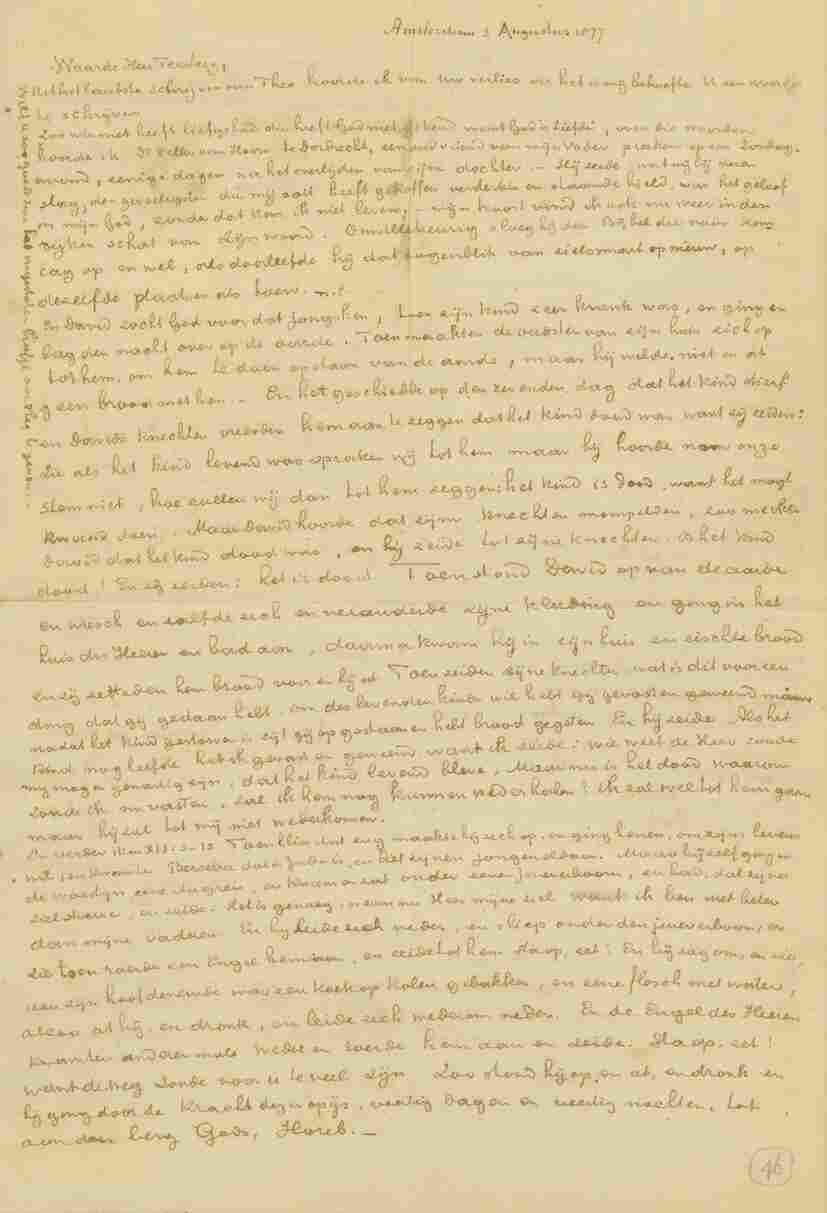 Amsterdam 3 Augustus 1877
Waarde Heer Tersteeg,
Uit het laatste schrijven van Theo hoorde ik van Uw verlies en het is mij behoefte U een woordje
te schrijven
Zoo wie niet heeft liefgehad die heeft God niet gekend want God is Liefde, over die woorden
hoorde ik Ds Keller van Hoorn te Dordrecht, een oud vriend van mijn Vader preeken op een Zondag-
avond, eenige dagen na het overlijden van zijn dochter. — Hij zeide, wat mij bij dezen
slag, den gevoeligsten die mij ooit heeft getroffen sterkte en staande hield, was het geloof
in mijn God, zonder dat kon ik niet leven, — mijn troost vond ik ook nu weer in den
rijken schat van Zijn woord. Onwillekeurig sloeg hij den Bijbel die voor hem
lag op en wel, als doorleefde hij dat oogenblik van zielesmart op nieuw, op
dezelfde plaatsen als toen. —
En David zocht God voor dat jongsken, toen zijn kind zeer krank was, en ging en
lag den nacht over op de aarde. Toen maakten de oudsten van zijn huis zich op
tot hem, om hem te doen opstaan van de aarde, maar hij wilde niet en at
geen brood met hen. — En het geschiedde op den zevenden dag dat het kind stierf
en Davids knechten vreesden hem aan te zeggen dat het kind dood was want zij zeiden:
Zie als het kind levend was spraken wij tot hem maar hij hoorde naar onze
stem niet, hoe zullen wij dan tot hem zeggen: het kind is dood, want het mogt
kwaad doen. Maar David hoorde dat zijn knechten mompelden, zoo merkte
David dat het kind dood was, en hij zeide tot zijne knechten. Is het kind
dood? En zij zeiden: het is dood. Toen stond David op van de aarde
en wiesch en zalfde zich en veranderde zijne kleeding en ging in het
huis des Heeren en bad aan, daarna kwam hij in zijn huis en eischte brood
en zij zetteden hem brood voor en hij at Toen zeiden zijne knechten wat is dit voor een
ding dat gij gedaan hebt. om des levenden kinds wil hebt gij gevast en geweend maar
nadat het kind gestorven is zijt gij opgestaan en hebt brood gegeten En hij zeide Als het
kind nog leefde heb ik gevast en geweend want ik zeide: wie weet de Heer zoude
mij mogen genadig zijn, dat het kind levend bleve, Maar nu is het dood waarom
zoude ik nu vasten, zal ik hem nog kunnen wederhalen? ik zal wel tot hem gaan
maar hij zal tot mij niet wederkomen.
En verder Toen hij dat zag maakte hij zich op, en ging henen, om zijns levens
wil en kwam te Berseba dat in Juda is, en liet zijnen jongen aldaar. Maar hij zelf ging in
de woestijn eene dagreis, en kwam en zat onder eenen jeneverboom, en bad, dat zijne
ziel stierve, en zeide. Het is genoeg, neem nu Heer mijne ziel want ik ben niet beter
dan mijne vaderen. En hij leide zich neder, en sliep onder den jeneverboom, en
zie toen roerde een Engel hem aan, en zeide tot hem Sta op, eet! En hij zag om, en zie,
aan zijn hoofdeneinde was een koek op kolen gebakken, en eene flesch met water,
alzoo at hij en dronk, en leide zich wederom neder. En de Engel des Heeren
kwam ten anderen male weder en roerde hem aan en zeide. Sta op, eet!
want de weg zoude voor u te veel zijn Zoo stond hij op, en at, en dronk en
hij ging door de kracht dezer spijs, veertig dagen en veertig nachten, tot
aan den berg Gods, Horeb. —
Wilt U zoo goed zijn het ingesloten briefje aan Theo te geven.
46